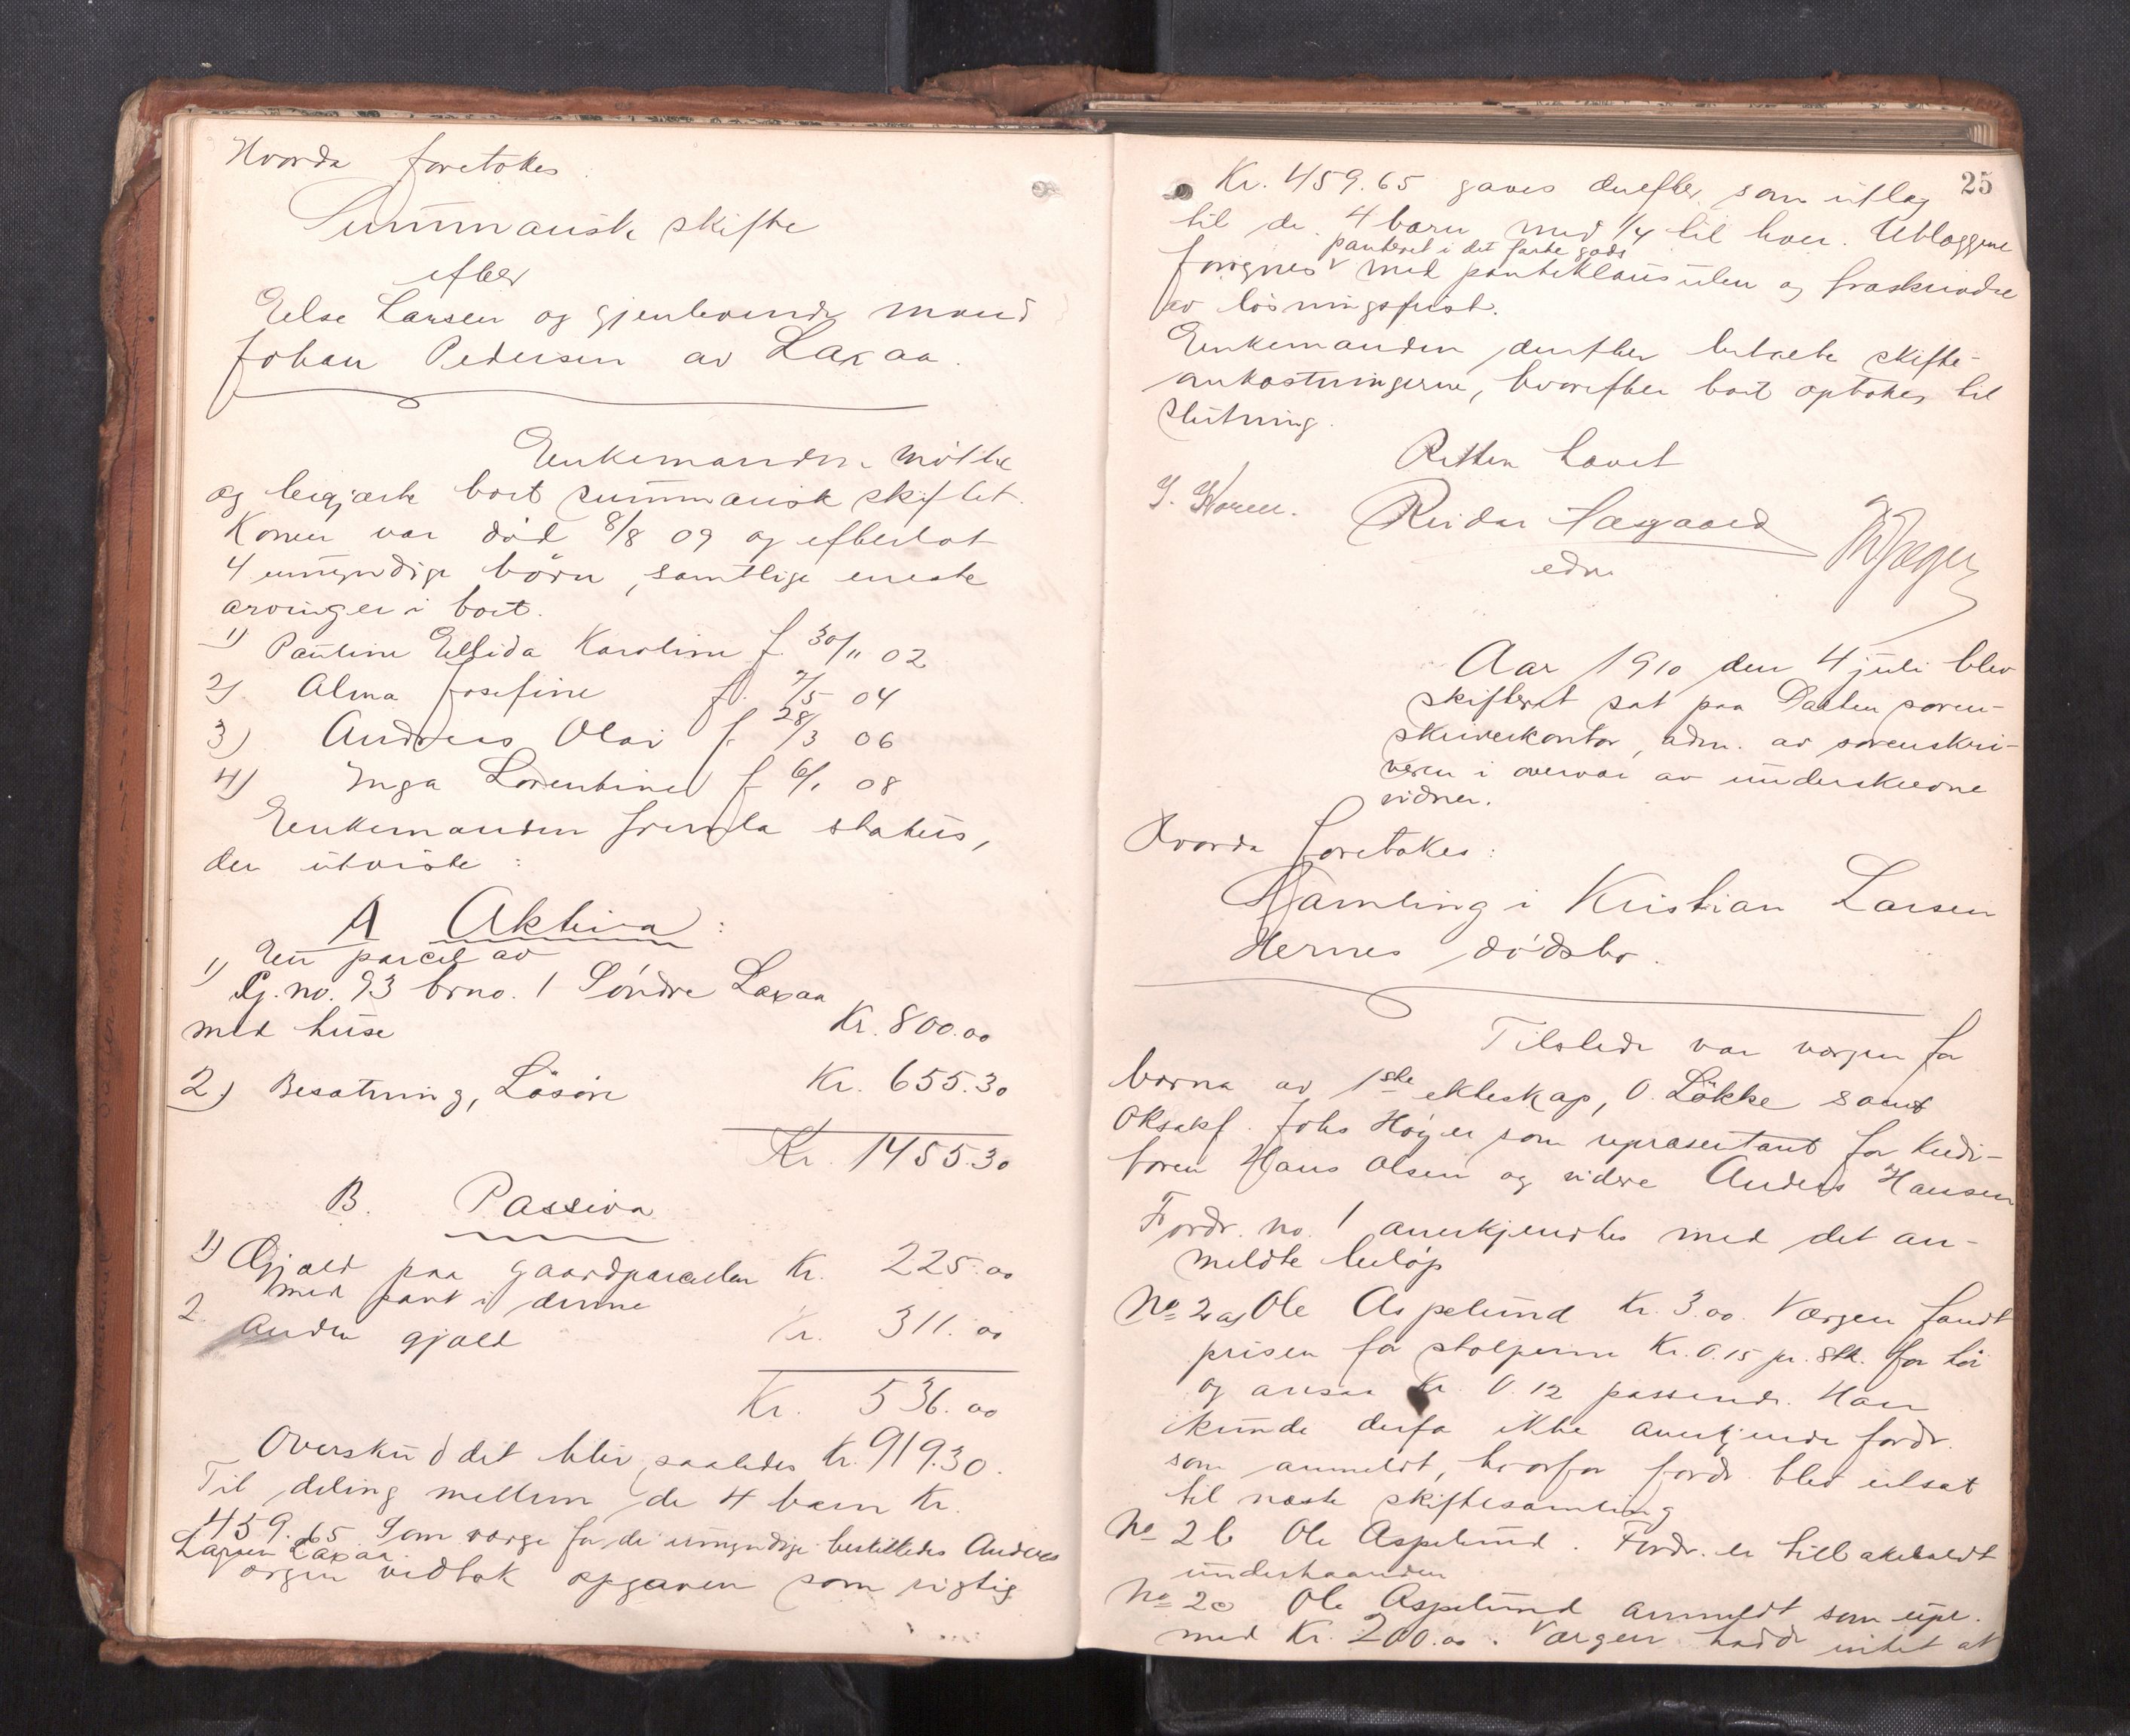 Hvorda foretokes
Summarisk skifte
efter
Else Larsen og gjenlevende mand
Johan Pedersen av Laxaa.
Enkemanden møtte
og begjærte boet summarisk skiftet.
Konen var død 8/8 09 og efterlot
4 umyndige børn, samtlige eneste
arvinger i boet.
1) Pauline Ellida Karoline f. 30/11 02
2) Alma Josefine f. 7/5 04
3) Andreas Olai f. 28/3 06
4) Inga Lorentine f 6/1 08
Enkemanden fremla status,
der utviste:
A Aktiva:
1) En parcel av
G.no. 93 brno. 1 Søndre Laxaa
med huse Kr. 800.00
2) Besætning, Løsøre Kr. 655.30
Kr. 1455.30
B. Passiva
1) Gjæld paa gaardparcellen Kr. 225.00
med pant i denne
2. Anden gjæld Kr. 311.00
Kr. 536.00
Overskuddet blir saaledes Kr. 919.30.
Til deling mellem de 4 barn Kr.
459.65. Som værge for de umyndige bestilledes Anders
Larsen Laxaa.
Værgen vedtok opgaven som rigtig
25
Kr. 459.65 gaves derefter som utlæg
til de 4 barn med 1/4 til hver. Utlæggene
panteret i det faste gods
forsynes v med panteklausulen og fraskrivelse
av løsningsfrist.
Enkemanden derefter betalte skifte-
omkostningerne, hvorefter boet optokes til
slutning.
Retten hævet
J. Koren. Reidar
edsv.
Aar 1910 den 4 juli blev
skifteret sat paa Dalen soren-
skriverkontor, adm. av sorenskri-
veren i overvær av underskrevne
vidner.
Hvorda foretokes:
Samling i Kristian Larsen
Hernes dødsbo.
Tilstede var værgen for
barna av 1ste ekteskap, O. Løkke samt
Oksakf. Johs Høyer som repræsentant for kredi-
toren Hans Olsen og videre Anders Hansen
Fordr. no. 1 anerkjendtes med det an-
meldte beløp
No 2 a) Ole Aspelund Kr. 3.00. Værgen fandt
prisen for stolperne Kr. 0.15 pr. stk. for høi
og ansaa Kr. 0.12 passende. Han
kunde derfor ikke anerkjende fordr.
som anmeldt, hvorfor fordr. blev utsat
til næste skiftesamling
No 2 b Ole Aspelund. Fordr. er tilbakeholdt
underhaanden
No 2 c Ole Aspelund anmeldt som upr.
med Kr. 200.00. Værgen hadde intet at